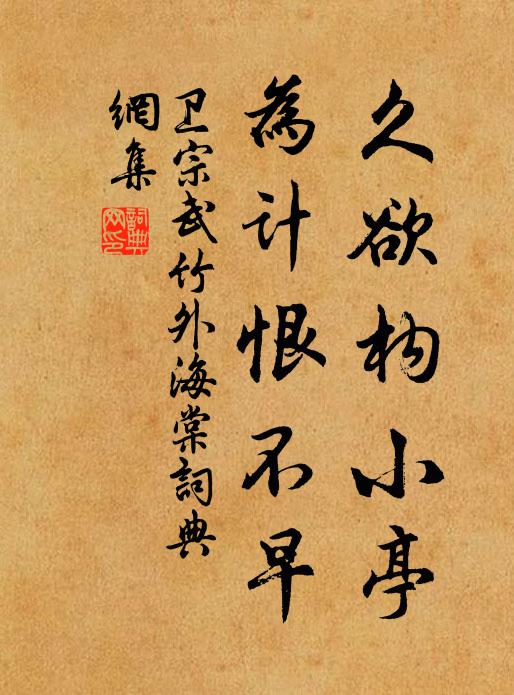 久欲构小亭
為计恨不早
卫宗武竹外海棠詞典
網集
詞典
网印